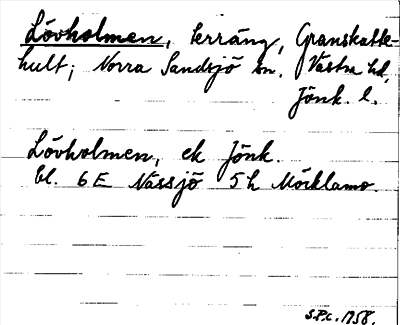 Lövholmen, terräng, Granskatte-
hult; Norra Sandsjö sn. Västra hd,
Jönk. l.
Lövholmen, ek Jönk.
bl. 6 E Nässjö 5 h Möcklamo.
S.P.L. 1958.